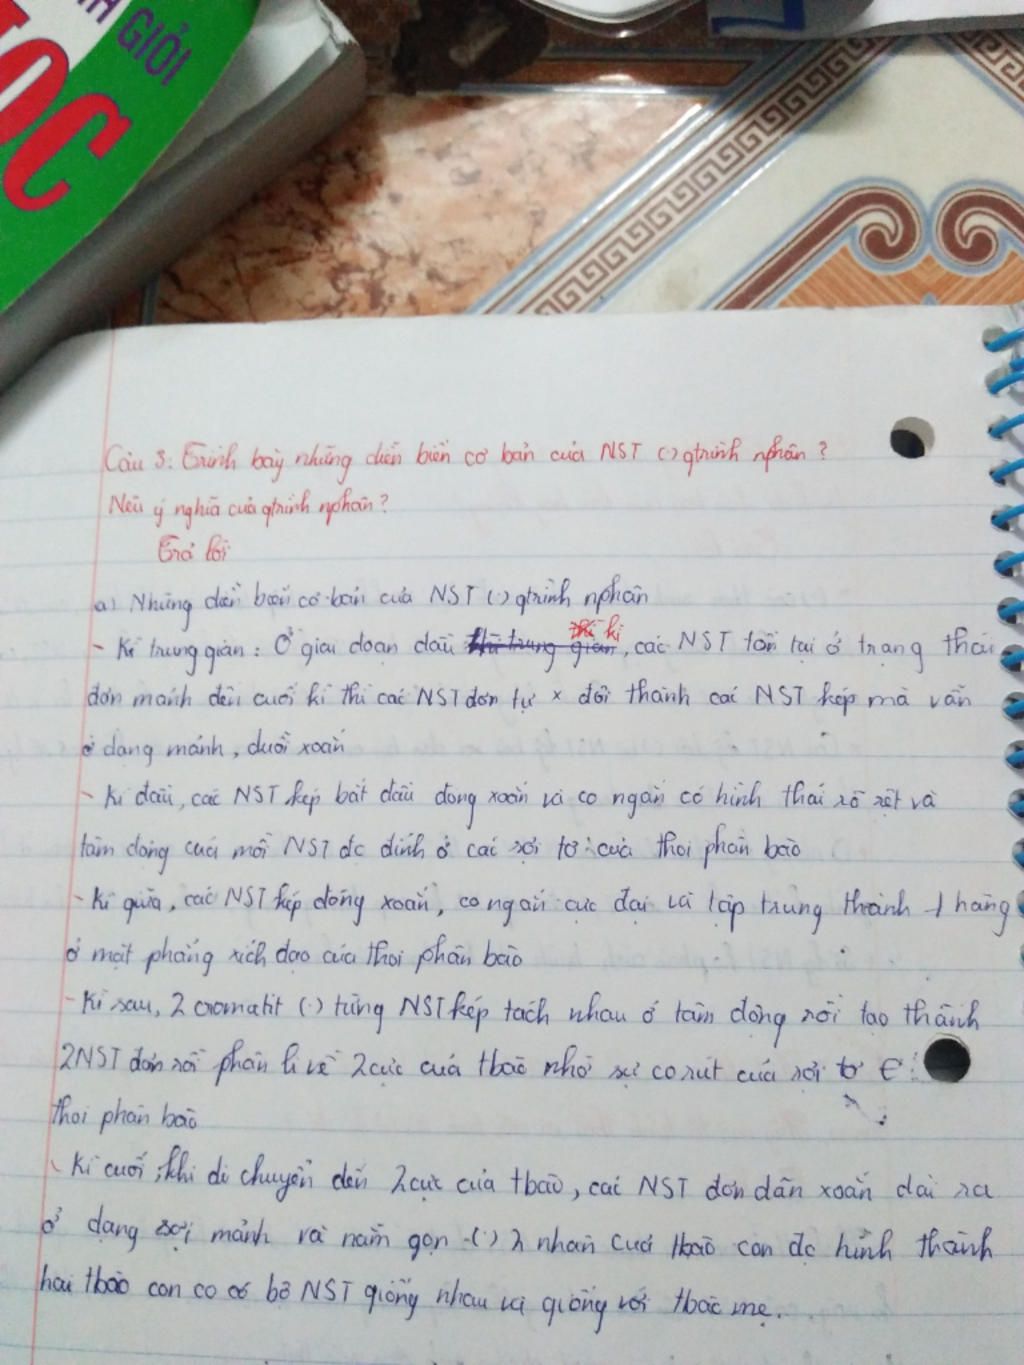 GIỎI
ỌC
Câu 3: Trình bày những diễn biến cơ bản của NST (.) qtrình nphân?
Nêu ý nghĩa của qtrình nphân?
Trả lời
a) Những diễn biến cơ bản của NST (.) qtrình nphân
- Kì trung gian: Ở giai đoạn đầu thì trung gian thì kì, các NST tồn tại ở trạng thái
đơn mảnh đến cuối kì thì các NST đơn tự x đôi thành các NST kép mà vẫn
ở dạng mảnh, duỗi xoắn
- Kì đầu, các NST kép bắt đầu đóng xoắn và co ngắn có hình thái rõ rệt và
tâm động của mỗi NST đc đính ở các sợi tơ của thoi phân bào
- Kì giữa, các NST kép đóng xoắn, co ngắn cực đại và tập trung thành 1 hàng
ở mặt phẳng xích đạo của thoi phân bào
- Kì sau, 2 cromatit (.) từng NST kép tách nhau ở tâm động rồi tạo thành
2NST đơn rồi phân li về 2 cực của tbào nhờ sự co rút của sợi tơ €
thoi phân bào
- Kì cuối, khi di chuyển đến 2 cực của tbào, các NST đơn dãn xoắn dài ra
ở dạng sợi mảnh và nằm gọn (.) 2 nhân của tbào con đc hình thành
hai tbào con có bộ NST giống nhau và giống với tbào mẹ.